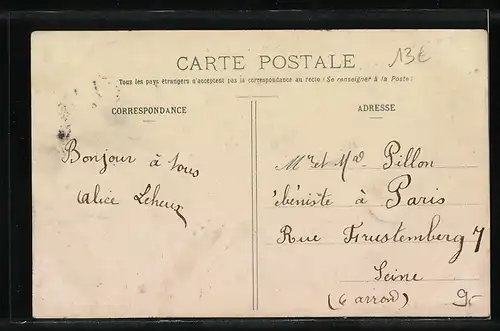 CARTE POSTALE
13€
Tous les pays étrangers n'acceptent pas la correspondance au recto (Se renseigner à la Poste)
CORRESPONDANCE
ADRESSE
Bonjour à tous
Alice Leheux
Mr et Mad Pillon
ébéniste à Paris
Rue Frustemberg 7
Seine
(6 arrond)
9.-